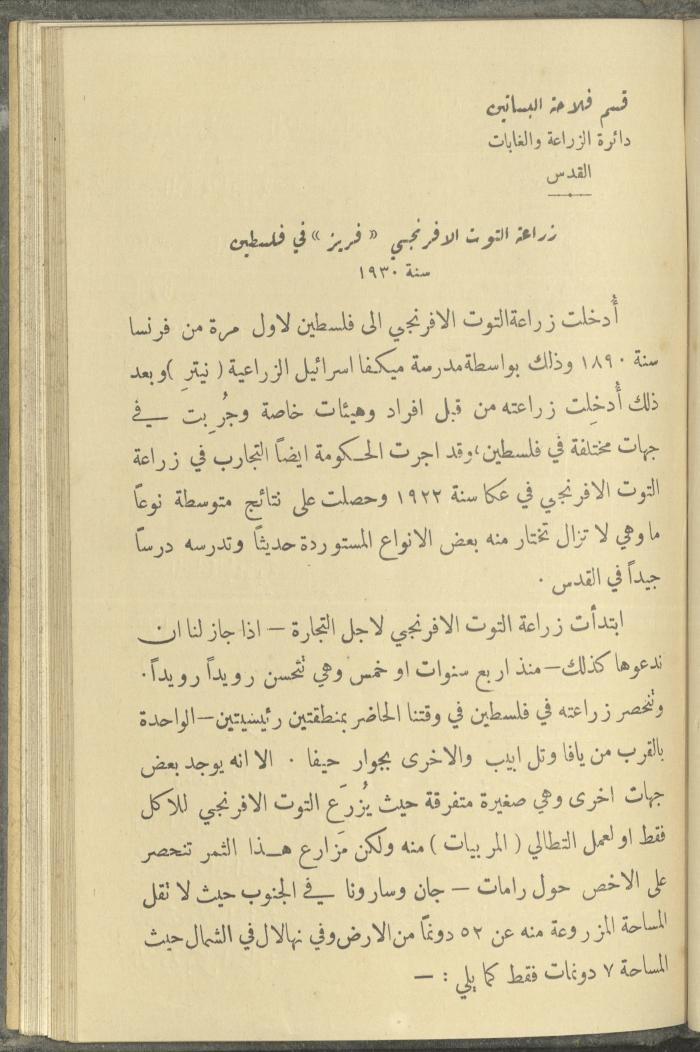 قسم فلاحة البساتين
دائرة الزراعة والغابات
القدس
زراعة التوت الافرنجي « فريز » في فلسطين
سنة ١٩٣٠
أُدخلت زراعة التوت الافرنجي الى فلسطين لاول مرة من فرنسا
سنة ١٨٩٠ وذلك بواسطة مدرسة ميكفا اسرائيل الزراعية ( نيتر ) وبعد
ذلك أُدخِلت زراعته من قبل افراد وهيئات خاصة وجُرِبت في
جهات مختلفة في فلسطين، وقد اجرت الحكومة ايضاً التجارب في زراعة
التوت الافرنجي في عكا سنة ١٩٢٢ وحصلت على نتائج متوسطة نوعاً
ما وهي لا تزال تختار منه بعض الانواع المستوردة حديثاً وتدرسه درساً
جيداً في القدس ٠
ابتدأت زراعة التوت الافرنجي لاجل التجارة – اذا جاز لنا ان
ندعوها كذلك – منذ اربع سنوات او خمس وهي تتحسن رويداً رويداً ٠
وتنحصر زراعته في فلسطين في وقتنا الحاضر بمنطقتين رئيسيتين – الواحدة
بالقرب من يافا وتل ابيب والاخرى بجوار حيفا ٠ الا انه يوجد بعض
جهات اخرى وهي صغيرة متفرقة حيث يُزرَع التوت الافرنجي للاكل
فقط او لعمل التطالي ( المربيات ) منه ولكن مَزارع هذا الثمر تنحصر
على الاخص حول رامات – جان وسارونا في الجنوب حيث لا تقل
المساحة المزروعة منه عن ٥٢ دونماً من الارض وفي نهالال في الشمال حيث
المساحة ٧ دونمات فقط كما يلي : –